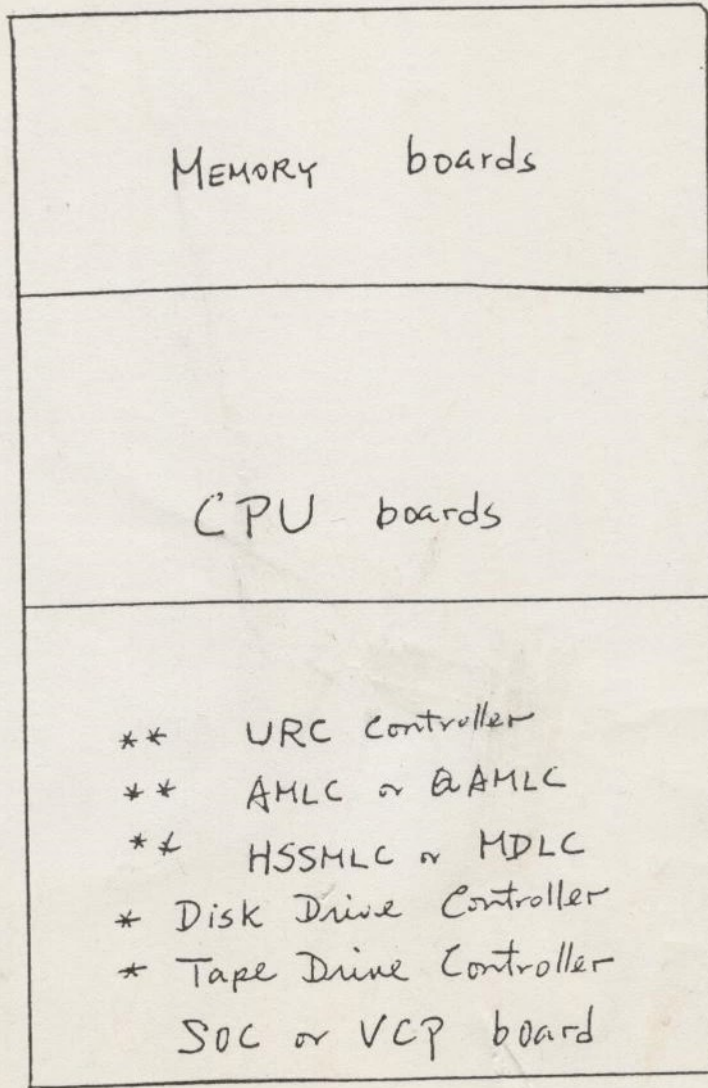 MEMORY boards
CPU boards
** URC Controller
** AMLC or QAMLC
** HSSMLC or MDLC
* Disk Drive Controller
* Tape Drive Controller
SOC or VCP board